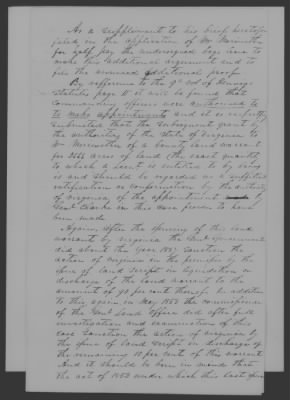 As a supplement to his brief heretofore
filed, in the application of
for half pay the undersigned begs leave to
make this additional argument and to
file the annexed additional proof.
By reference to the 9" vol of Hennings
Statutes, page 11 it will be found that
Commanding officers were authorized to
to make appointments and it is respectfully
submitted that the subsequent grant by
the authorities of the State of Virginia to
of a bounty land warrant
for 2666 acres of land (the exact quantity
to which a is entitled to by law)
is and should be regarded as a sufficient
ratification or confirmation by the authority
of Virginia of the appointment by
Genl Clarke in this case proven to have
been made.
Again, after the issuing of this land
warrant by Virginia the Genl government
did about the year 183 sanction the
action of Virginia in the premises by the
issue of land script in liquidation or
discharge of the land warrant to the
amount of 90 per cent thereof. In addition
to this again in May 1853 the commissioner
of the Genl Land Office did after full
investigation and examination of this
case sanction the action of Virginia by
the issue of land script in discharge of
the remaining 10 per cent of this warrant
And it should be born in mind that
the act of 1852 under which this last